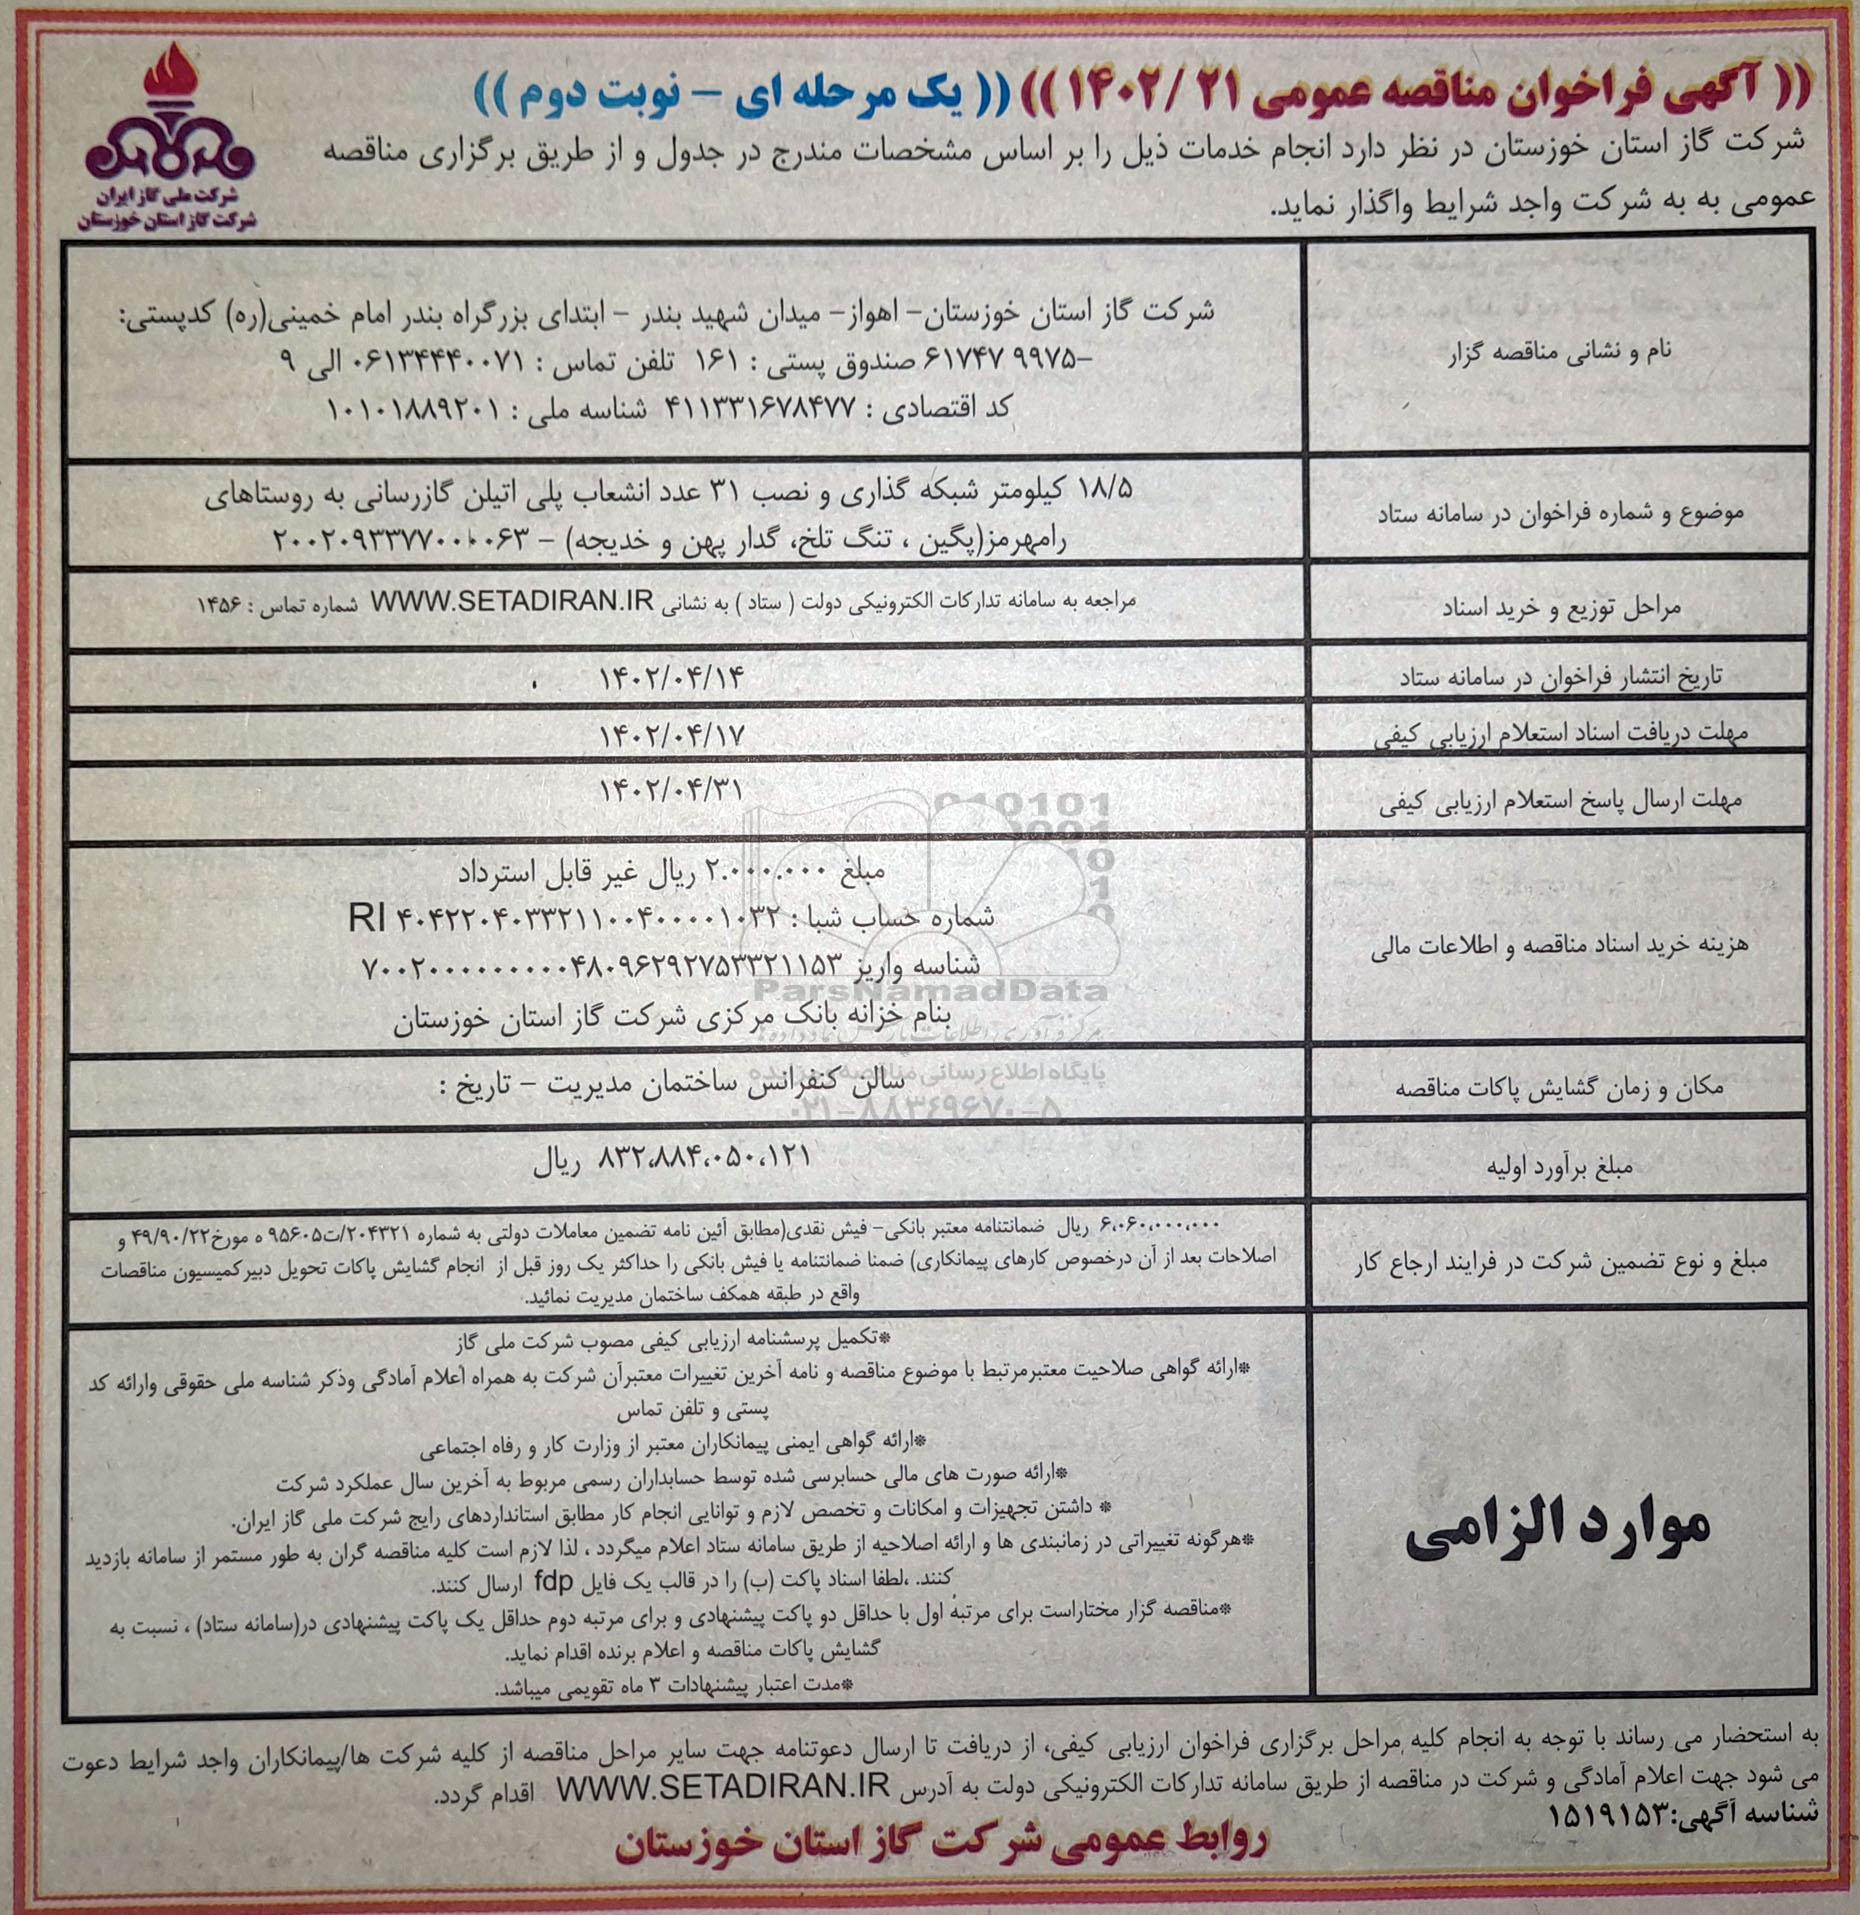 (( آگهی فراخوان مناقصه عمومی ۲۱ /۱۴۰۲ )) (( یک مرحله ای – نوبت دوم ))
شرکت ملی گاز ایران
شرکت گاز استان خوزستان
شرکت گاز استان خوزستان در نظر دارد انجام خدمات ذیل را بر اساس مشخصات مندرج در جدول و از طریق برگزاری مناقصه
عمومی به به شرکت واجد شرایط واگذار نماید.
نام و نشانی مناقصه گزار
شرکت گاز استان خوزستان- اهواز- میدان شهید بندر - ابتدای بزرگراه بندر امام خمینی(ره) کدپستی:
-۹۹۷۵ ۶۱۷۴۷ صندوق پستی : ۱۶۱ تلفن تماس : ۰۶۱۳۴۴۴۰۰۷۱ الی ۹
کد اقتصادی : ۴۱۱۳۳۱۶۷۸۴۷۷ شناسه ملی : ۱۰۱۰۱۸۸۹۲۰۱
موضوع و شماره فراخوان در سامانه ستاد
۱۸/۵ کیلومتر شبکه گذاری و نصب ۳۱ عدد انشعاب پلی اتیلن گازرسانی به روستاهای
رامهرمز(پگین ، تنگ تلخ، گدار پهن و خدیجه) - ۲۰۰۲۰۹۳۳۷۷۰۰۰۰۶۳
مراحل توزیع و خرید اسناد
مراجعه به سامانه تدارکات الکترونیکی دولت ( ستاد ) به نشانی WWW.SETADIRAN.IR شماره تماس : ۱۴۵۶
تاریخ انتشار فراخوان در سامانه ستاد
۱۴۰۲/۰۴/۱۴
مهلت دریافت اسناد استعلام ارزیابی کیفی
۱۴۰۲/۰۴/۱۷
مهلت ارسال پاسخ استعلام ارزیابی کیفی
۱۴۰۲/۰۴/۳۱
هزینه خرید اسناد مناقصه و اطلاعات مالی
مبلغ ۲.۰۰۰.۰۰۰ ریال غیر قابل استرداد
شماره حساب شبا : RI ۴۰۴۲۲۰۴۰۳۳۲۱۱۰۰۴۰۰۰۰۱۰۳۲
شناسه واریز ۷۰۰۲۰۰۰۰۰۰۰۰۰۰۴۸۰۹۶۲۹۲۷۵۳۳۲۱۱۵۳
بنام خزانه بانک مرکزی شرکت گاز استان خوزستان
ParsNamadData
پایگاه اطلاع رسانی مناقصه و مزایده
۰۲۱-۸۸۳۴۹۶۷۰-۵
مکان و زمان گشایش پاکات مناقصه
سالن کنفرانس ساختمان مدیریت - تاریخ :
مبلغ برآورد اولیه
۸۳۲،۸۸۴،۰۵۰،۱۲۱ ریال
مبلغ و نوع تضمین شرکت در فرایند ارجاع کار
۶،۰۶۰،۰۰۰،۰۰۰ ریال ضمانتنامه معتبر بانکی- فیش نقدی(مطابق آئین نامه تضمین معاملات دولتی به شماره ۲۰۴۳۲۱/ت۹۵۶۰۵ ه مورخ۴۹/۹۰/۲۲ و
اصلاحات بعد از آن درخصوص کارهای پیمانکاری) ضمنا ضمانتنامه یا فیش بانکی را حداکثر یک روز قبل از انجام گشایش پاکات تحویل دبیرکمیسیون مناقصات
واقع در طبقه همکف ساختمان مدیریت نمائید.
موارد الزامی
*تکمیل پرسشنامه ارزیابی کیفی مصوب شرکت ملی گاز
*ارائه گواهی صلاحیت معتبرمرتبط با موضوع مناقصه و نامه آخرین تغییرات معتبرآن شرکت به همراه اعلام آمادگی وذکر شناسه ملی حقوقی وارائه کد
پستی و تلفن تماس
*ارائه گواهی ایمنی پیمانکاران معتبر از وزارت کار و رفاه اجتماعی
*ارائه صورت های مالی حسابرسی شده توسط حسابداران رسمی مربوط به آخرین سال عملکرد شرکت
* داشتن تجهیزات و امکانات و تخصص لازم و توانایی انجام کار مطابق استانداردهای رایج شرکت ملی گاز ایران.
*هرگونه تغییراتی در زمانبندی ها و ارائه اصلاحیه از طریق سامانه ستاد اعلام میگردد ، لذا لازم است کلیه مناقصه گران به طور مستمر از سامانه بازدید
کنند. ،لطفا اسناد پاکت (ب) را در قالب یک فایل fdp ارسال کنند.
*مناقصه گزار مختاراست برای مرتبه اول با حداقل دو پاکت پیشنهادی و برای مرتبه دوم حداقل یک پاکت پیشنهادی در(سامانه ستاد) ، نسبت به
گشایش پاکات مناقصه و اعلام برنده اقدام نماید.
*مدت اعتبار پیشنهادات ۳ ماه تقویمی میباشد.
به استحضار می رساند با توجه به انجام کلیه مراحل برگزاری فراخوان ارزیابی کیفی، از دریافت تا ارسال دعوتنامه جهت سایر مراحل مناقصه از کلیه شرکت ها/پیمانکاران واجد شرایط دعوت
می شود جهت اعلام آمادگی و شرکت در مناقصه از طریق سامانه تدارکات الکترونیکی دولت به آدرس WWW.SETADIRAN.IR اقدام گردد.
شناسه آگهی:۱۵۱۹۱۵۳
روابط عمومی شرکت گاز استان خوزستان